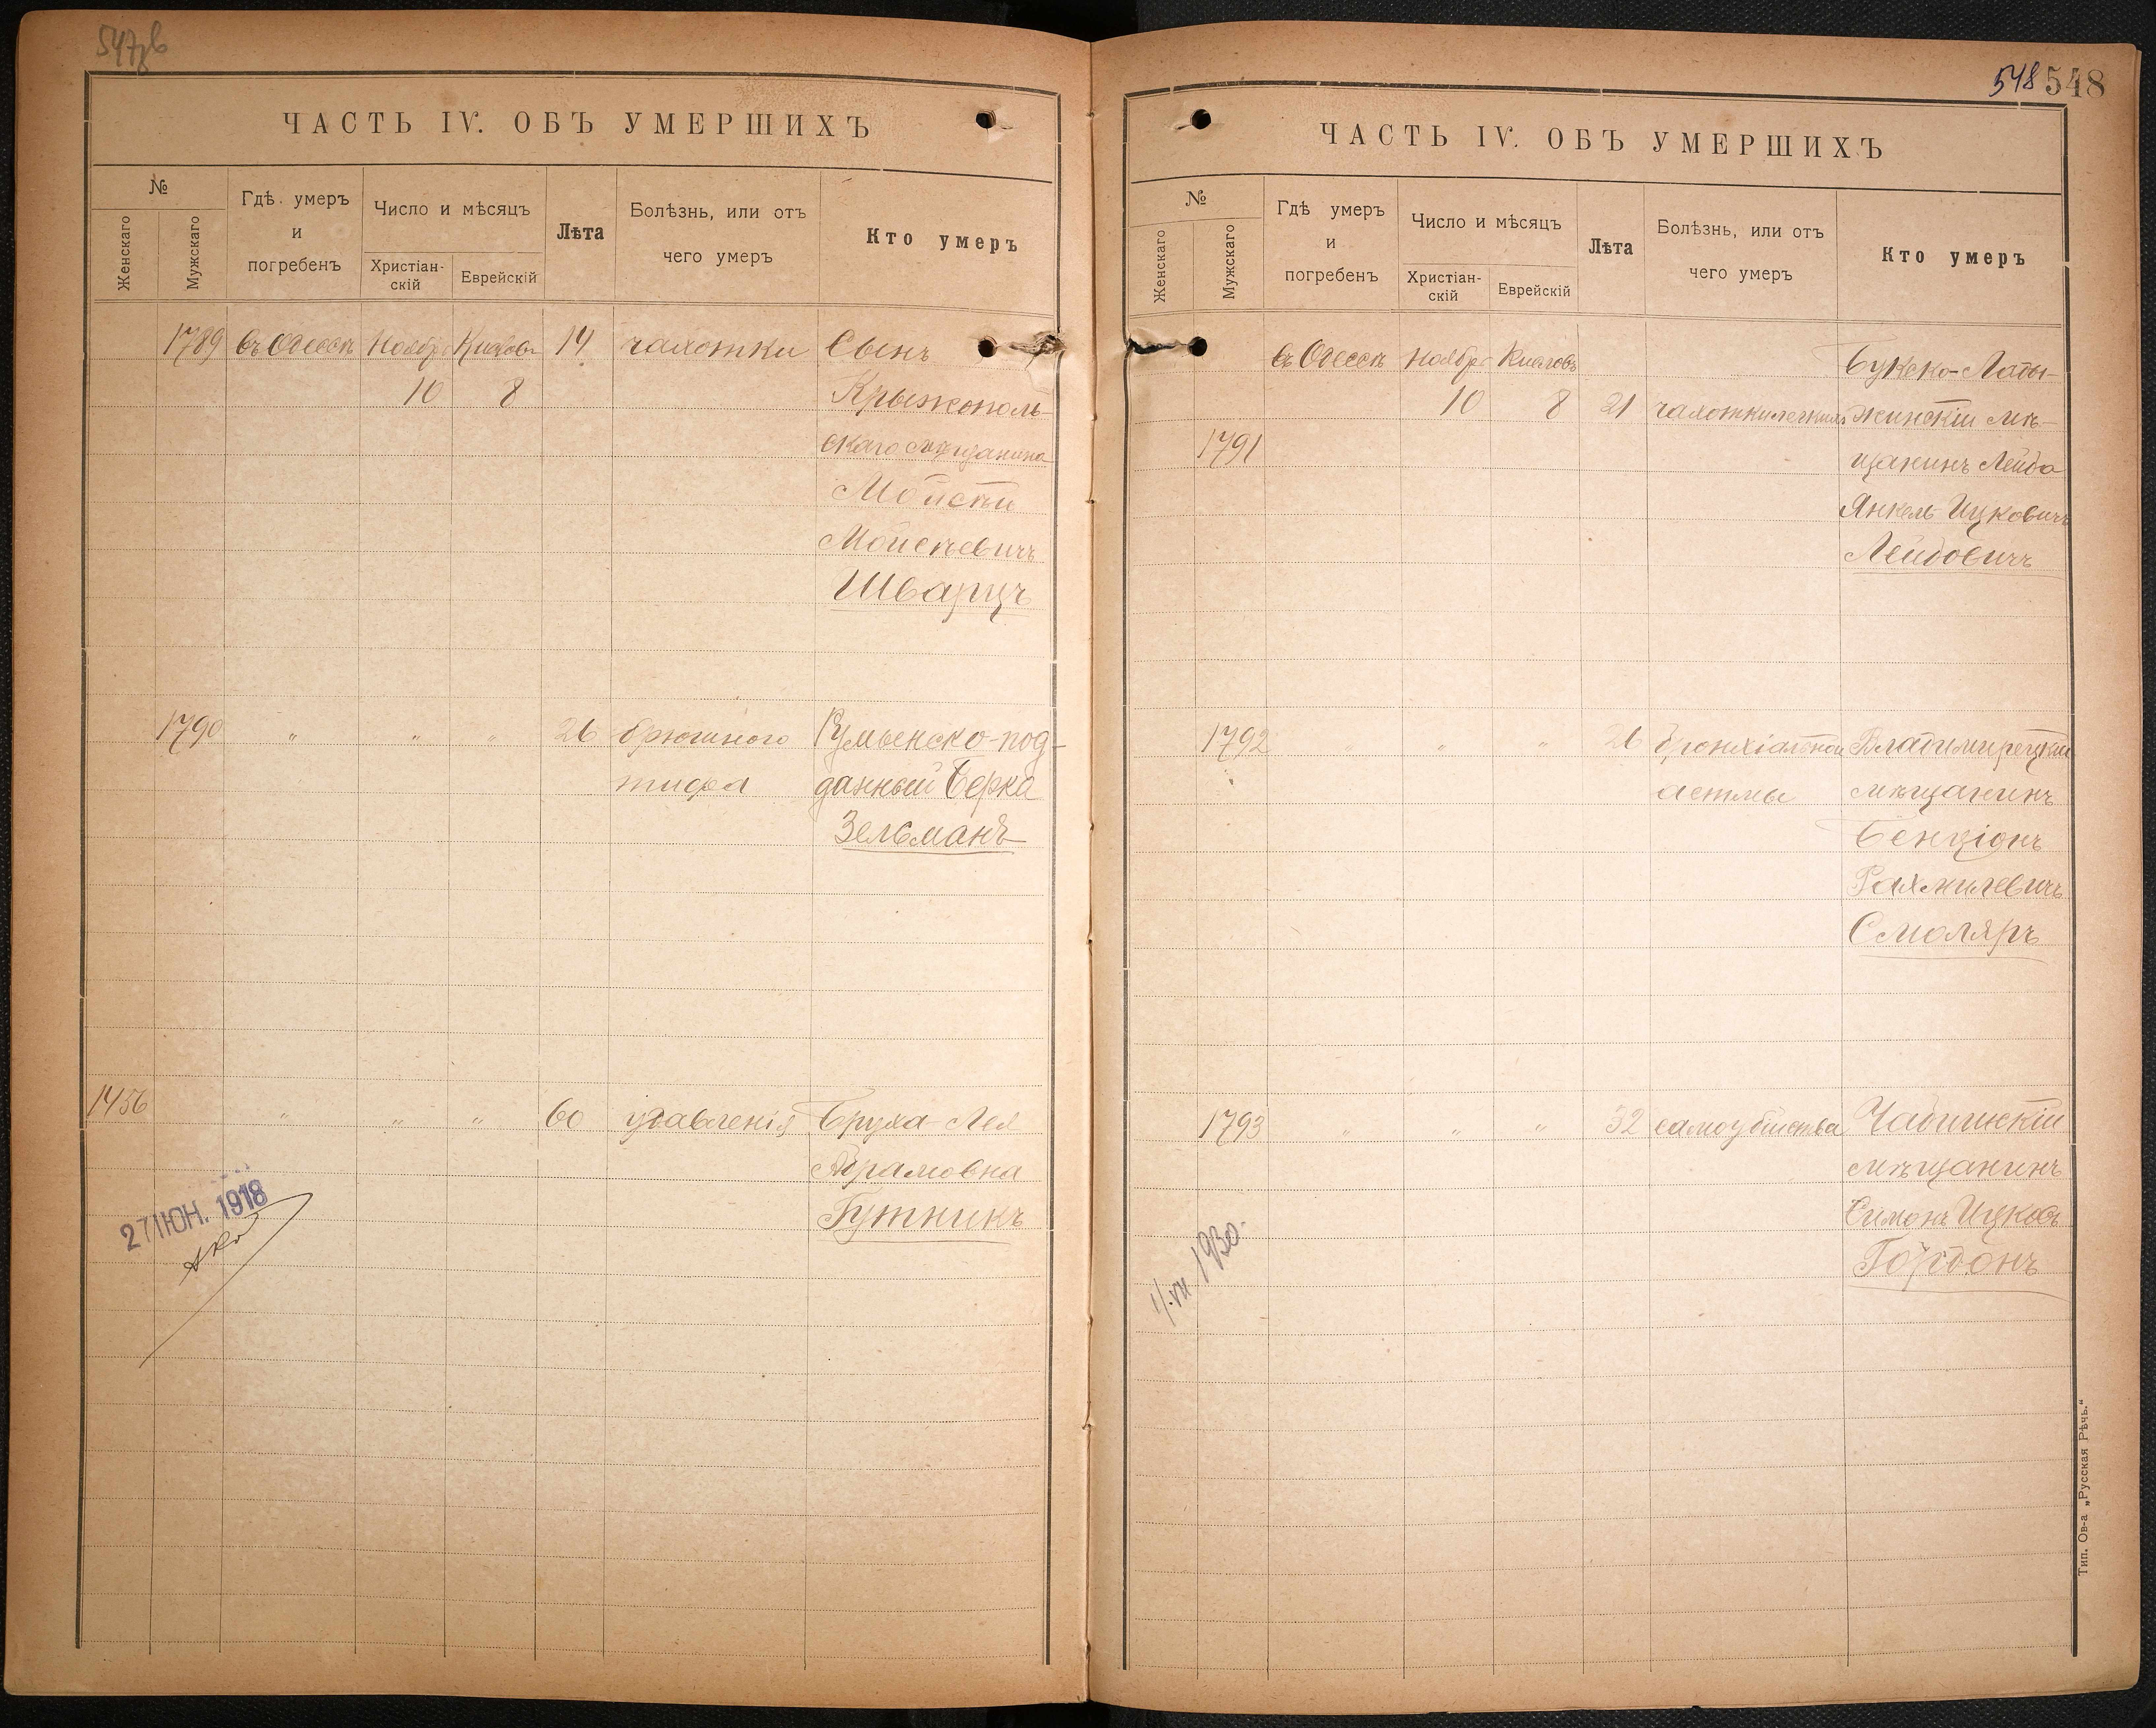 547 об
ЧАСТЬ IV. ОБЪ УМЕРШИХЪ
№
Женскаго
Мужскаго
Гдѣ умеръ
и
погребенъ
Число и мѣсяцъ
Христіан-
скій
Еврейскій
Лѣта
Болѣзнь, или отъ
чего умеръ
Кто умеръ
1789 въ Одессѣ Ноябр Кислевъ 14 чахотки Сынъ
10 8 Крыжополь-
скаго мѣщанина
Мойсѣй
Мойсѣевичъ
Шварцъ
1790 " " " 26 брюшного Румынско-под-
тифа данный Берка
Зельманъ
1456 " " " 60 удавленія Бруха-Лея
Абрамовна
Гутникъ
27 ІЮН. 1918
548 548
ЧАСТЬ IV. ОБЪ УМЕРШИХЪ
№
Женскаго
Мужскаго
Гдѣ умеръ
и
погребенъ
Число и мѣсяцъ
Христіан-
скій
Еврейскій
Лѣта
Болѣзнь, или отъ
чего умеръ
Кто умеръ
въ Одессѣ Ноябр Кислевъ Букско-Лады-
10 8 21 чахотки легкихъ жинскій мѣ-
1791 щанинъ Лейба
Янкель Ицковичъ
Лейбовичъ
1792 " " " 26 бронхіальной Владимирецкій
астмы мѣщанинъ
Бенціонъ
Рахмилевичъ
Смоляръ
1793 " " " 32 самоубійства
мѣщанинъ
Симонъ Ицковъ
Гордонъ
1/VII 1930.
Тип. Ов-а „Русская Рѣчь.“